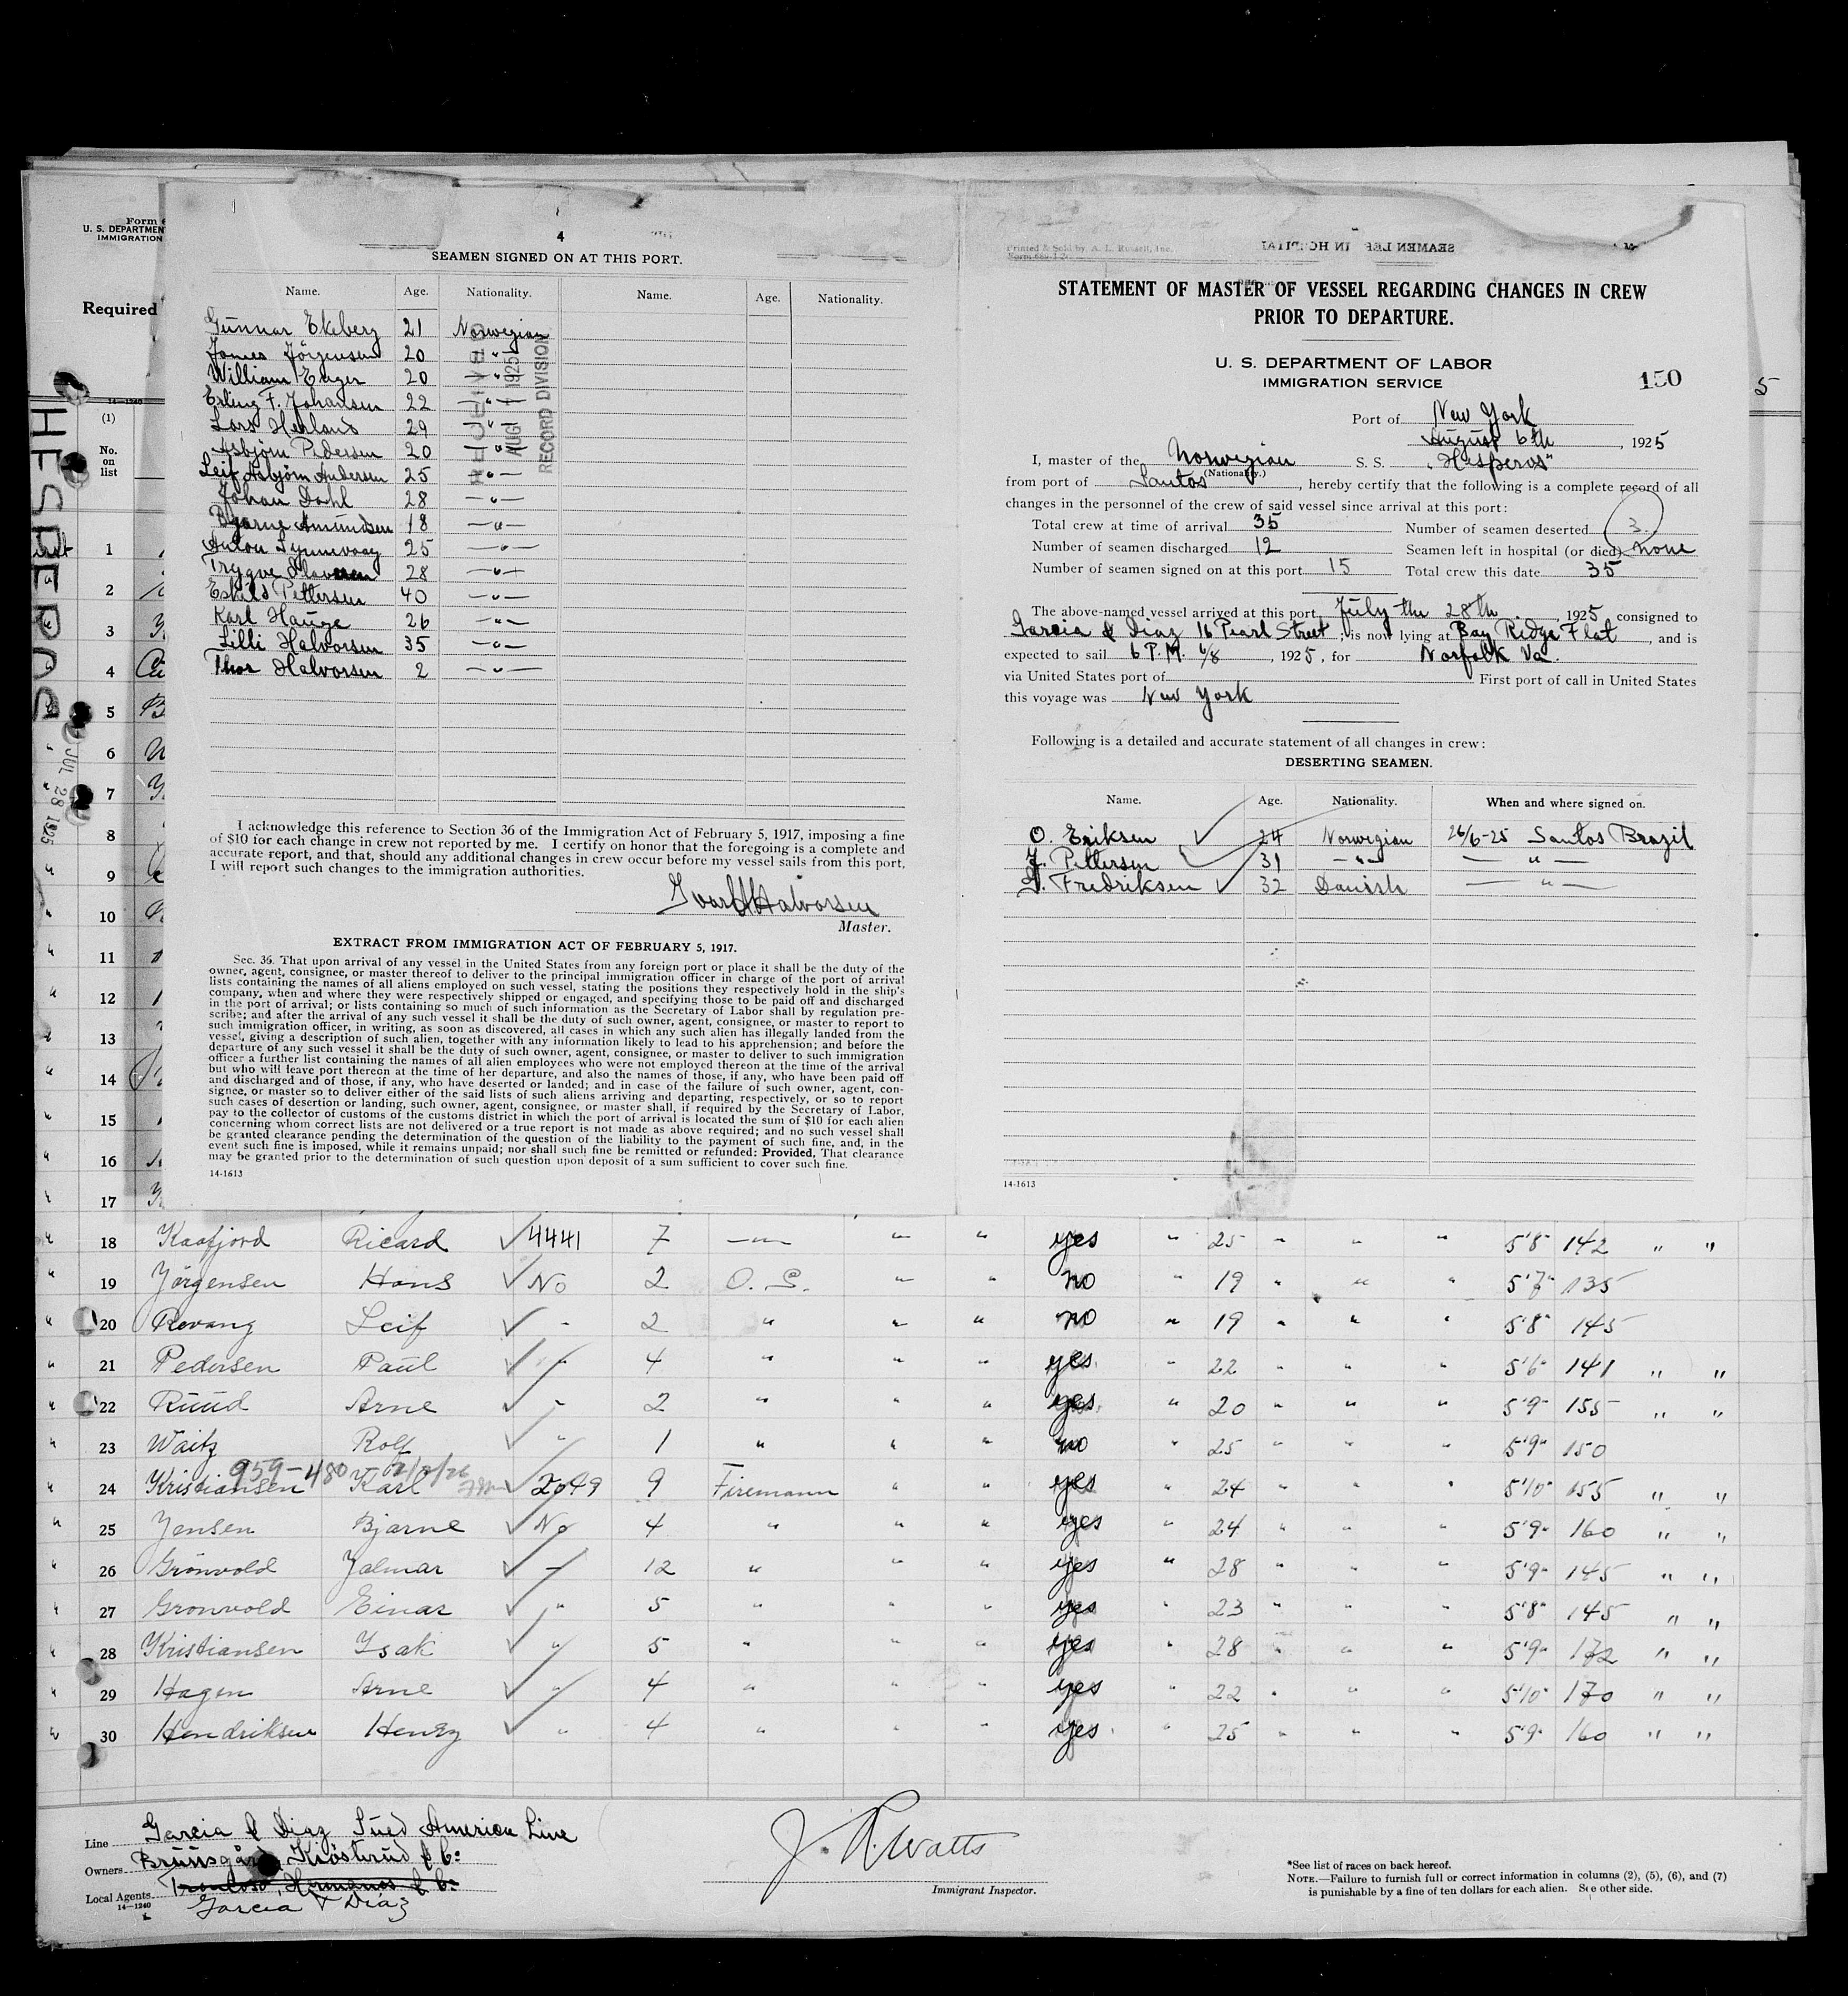 Form
U. S. DEPARTMEN
IMMIGRATION
Required
14—1240
(1)
No.
on
list
HESPERUS
JUL 28 1925
4
SEAMEN SIGNED ON AT THIS PORT.
Name. Age. Nationality. Name. Age. Nationality.
Gunnar Ekeberg 21 Norwegian
James Jörgensen 20 —"—
William Enger 20 —"—
Erling F. Johansen 22 —"—
Lars Herland 29 —"—
Asbjörn Pedersen 20 —"—
Leif Asbjörn Andersen 25 —"—
Johan Dahl 28 —"—
Bjarne Amundsen 18 —"—
Anton Synnevaag 25 —"—
Trygve 28 —"—
Eskild Pettersen 40 —"—
Karl Hauge 26 —"—
Lilli Halvorsen 35 —"—
Thor Halvorsen 2 —"—
RECEIVED
AUG 1925
RECORD DIVISION
I acknowledge this reference to Section 36 of the Immigration Act of February 5, 1917, imposing a fine
of $10 for each change in crew not reported by me. I certify on honor that the foregoing is a complete and
accurate report, and that, should any additional changes in crew occur before my vessel sails from this port,
I will report such changes to the immigration authorities.
Halvorsen
Master.
EXTRACT FROM IMMIGRATION ACT OF FEBRUARY 5, 1917.
Sec. 36. That upon arrival of any vessel in the United States from any foreign port or place it shall be the duty of the
owner, agent, consignee, or master thereof to deliver to the principal immigration officer in charge of the port of arrival
lists containing the names of all aliens employed on such vessel, stating the positions they respectively hold in the ship's
company, when and where they were respectively shipped or engaged, and specifying those to be paid off and discharged
in the port of arrival; or lists containing so much of such information as the Secretary of Labor shall by regulation pre-
scribe; and after the arrival of any such vessel it shall be the duty of such owner, agent, consignee, or master to report to
such immigration officer, in writing, as soon as discovered, all cases in which any such alien has illegally landed from the
vessel, giving a description of such alien, together with any information likely to lead to his apprehension; and before the
departure of any such vessel it shall be the duty of such owner, agent, consignee, or master to deliver to such immigration
officer a further list containing the names of all alien employees who were not employed thereon at the time of the arrival
but who will leave port thereon at the time of her departure, and also the names of those, if any, who have been paid off
and discharged and of those, if any, who have deserted or landed; and in case of the failure of such owner, agent, con-
signee, or master so to deliver either of the said lists of such aliens arriving and departing, respectively, or so to report
such cases of desertion or landing, such owner, agent, consignee, or master shall, if required by the Secretary of Labor,
pay to the collector of customs of the customs district in which the port of arrival is located the sum of $10 for each alien
concerning whom correct lists are not delivered or a true report is not made as above required; and no such vessel shall
be granted clearance pending the determination of the question of the liability to the payment of such fine, and, in the
event such fine is imposed, while it remains unpaid; nor shall such fine be remitted or refunded: Provided, That clearance
may be granted prior to the determination of such question upon deposit of a sum sufficient to cover such fine.
14-1613
Printed & Sold by A. L. Russell, Inc.
STATEMENT OF MASTER OF VESSEL REGARDING CHANGES IN CREW
PRIOR TO DEPARTURE.
U. S. DEPARTMENT OF LABOR
IMMIGRATION SERVICE
150
5
Port of New York
August 6th, 1925
I, master of the Norwegian S. S. "Hesperus"
(Nationality.)
from port of Santos, hereby certify that the following is a complete record of all
changes in the personnel of the crew of said vessel since arrival at this port:
Total crew at time of arrival 35 Number of seamen deserted 3.
Number of seamen discharged 12 Seamen left in hospital (or died) none
Number of seamen signed on at this port 15 Total crew this date 35
The above-named vessel arrived at this port July the 28th 1925 consigned to
Garcia & Diaz 16 Pearl Street; is now lying at Bay Ridge Flat, and is
expected to sail 6 P.M. 6/8, 1925, for Norfolk Va.
via United States port of First port of call in United States
this voyage was New York
Following is a detailed and accurate statement of all changes in crew:
DESERTING SEAMEN.
Name. Age. Nationality. When and where signed on.
O. Eriksen 24 Norwegian 26/6-25 Santos Brazil
J. Pettersen 31 —"— —"—
Fredriksen 32 Danish —"—
14-1613
1
2
3
4
5
6
7
8
9
10
11
12
13
14
15
16
17
18 Kaafjord Ricard 4441 7 —"— " " yes " 25 " " " 5'8" 142 " "
19 Jörgensen Hans No 2 O. S. " " no " 19 " " " 5'7" 135
20 Revang Leif - 2 " " " no " 19 " " " 5'8" 145
21 Pedersen Paul " 4 " " " yes " 22 " " " 5'6" 141 " "
22 Ruud Arne - 2 " " " yes " 20 " " " 5'9" 155 " "
23 Waitz Rolf " 1 " " " no " 25 " " " 5'9" 150
959-480
24 Kristiansen Karl 2049 9 Firemann " " yes " 24 " " " 5'10" 155 " "
25 Jensen Bjarne No 4 " " " yes " 24 " " " 5'9" 160 " "
26 Grönvold Jalmar - 12 " " " yes " 28 " " " 5'9" 145 " "
27 Gronvold Einar " 5 " " " yes " 23 " " " 5'8" 145 " "
28 Kristiansen Isak " 5 " " " yes " 28 " " " 5'9" 172 " "
29 Hagen Arne " 4 " " " yes " 22 " " " 5'10" 170 " "
30 Hendriksen Henry " 4 " " " yes " 25 " " " 5'9" 160 " "
Line Garcia & Diaz Sued America Line
Owners Bruusgård, Kiösterud & Co:
Local Agents Hermanos & Co:
14—1240
Garcia & Diaz
J. R. Watts
Immigrant Inspector.
*See list of races on back hereof.
NOTE.—Failure to furnish full or correct information in columns (2), (5), (6), and (7)
is punishable by a fine of ten dollars for each alien. See other side.